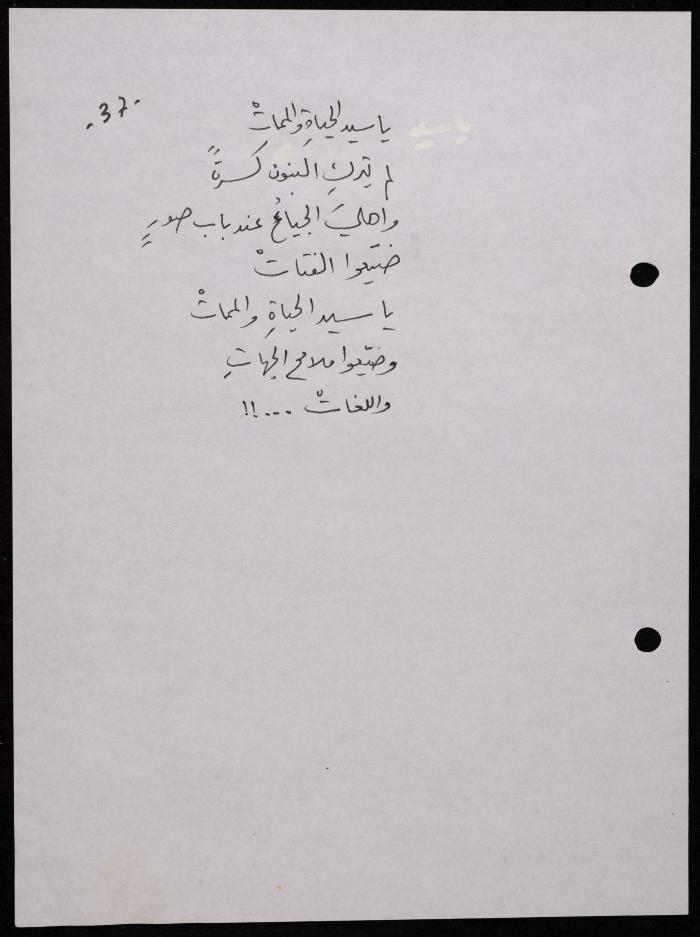 .37.
يا سيد الحياةِ والمماتْ
لم يتركِ البنون كسرةً
وأهليَ الجياعُ عند باب صورٍ
ضيّعوا الفتاتْ
يا سيد الحياةِ والمماتْ
وضيّعوا ملامح الجهاتِ
واللغاتْ ...!!